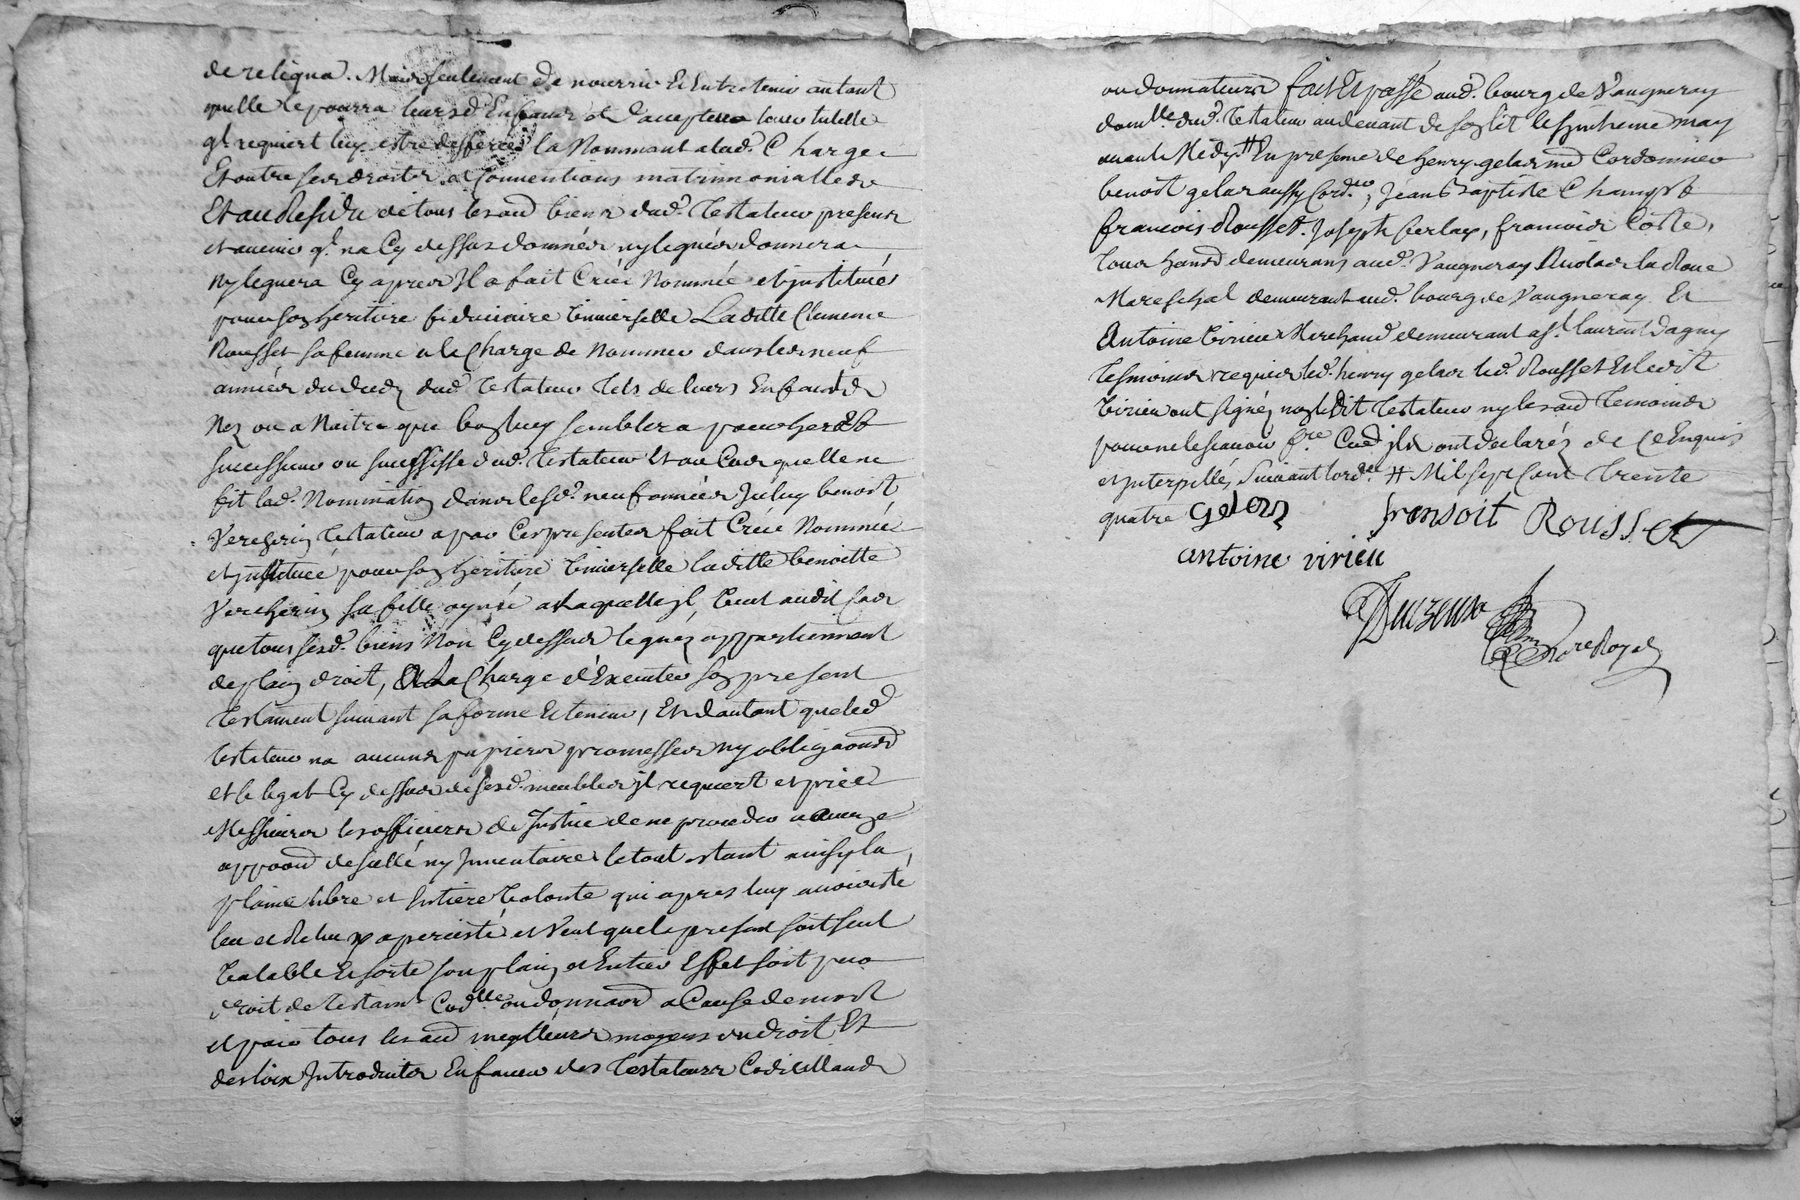 de reliqua. Mais seulement de nourrir et Entretenir autant
quelle le pourra leursd. Enfans et d'accepter leur tutelle
ql requiert luy estre defferée la Nommant alad. Charge
Et outre ses droits et Conventions matrimonialles
Et au Residu de tous lesd biens dud. Testateur presens
et avenir ql na Cy dessus donnés ny legués donnera
ny leguera Cy apres Il a fait Créé Nommé et institué
pour son heritiere fiduciaire Universelle Laditte Clemence
Rousset sa femme a la Charge de Nommer dans les neuf
années du deces dud Testateur tels de leurs Enfants
Nez ou a Naitre que bon luy semblera pour her
successeur ou successisse dud. Testateur Et au Cas quelle ne
fit lad. Nomination dans lesd. neuf années Iceluy benoist
Vercherin testateur a par Ces presentes fait Créé Nommé
et institué pour son heritiere Universelle laditte benoitte
Vercherin sa fille aynée a laquelle il veut audit Cas
que tous sesd. biens Non Cy dessus leguez appartiennent
de plain droit, A La Charge d'Executer son present
Testament suivant sa forme Et teneur, Et d'autant que led
testateur na aucuns papiers promesses ny obligaons
et le legat Cy dessus de sesd. meubles il requiert et prie
Messieurs les officiers de Justice de ne proceder a aucune
appoon de scellé ny Inventaire le tout estant ainsy la
plaine libre et Entiere Volonté qui apres luy avoir esté
leu et Releu y a percisté et Veut que le present soit seul
Valable Et sorte son plain et Entier Effet soit par
droit de testamt Codlle ou donnaon a Cause de mort
et par tous lesd meylleurs moyens en droit Et
des loix Introduites En faveur des Testateurs Codicillands
ou donnateurs fait Et passé aud. bourg de Vaugneray
domlle dud. testateur au devant de son lit le huitieme may
avant Midy # En presence de henry gelas md Cordonnier
benoit gelas aussy Cord.er, Jean Baptiste Champt
francois Rousset. Joseph, francois Coste,
tous demeurans aud. Vaugneray Nicolas la Roue
Mareschal demeurant aud. bourg de Vaugneray Et
Antoine Virieu Marchand demeurant a st laurent Dagny
tesmoins requis led. henry gelas led. Rousset Et ledit
Virieu ont signéz non ledit Testateur ny lesd temoins
pour ne le scavoir fre Coe ils ont declarés de Ce Enquis
et Interpellés Suivant lordce # Mil sept Cent trente
quatre gelas fransoit Rousset
antoine virieu
Nore Royal